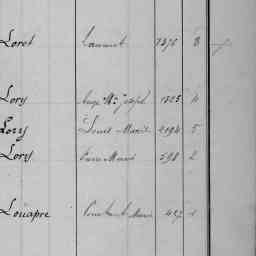 Loret Laurent 1376 8
Lory Ange Mie Joseph 1805 4
Lory Louis Marie 2194 5
Lory Pierre Marie 598 2
Louapre Constant Marie 427 1